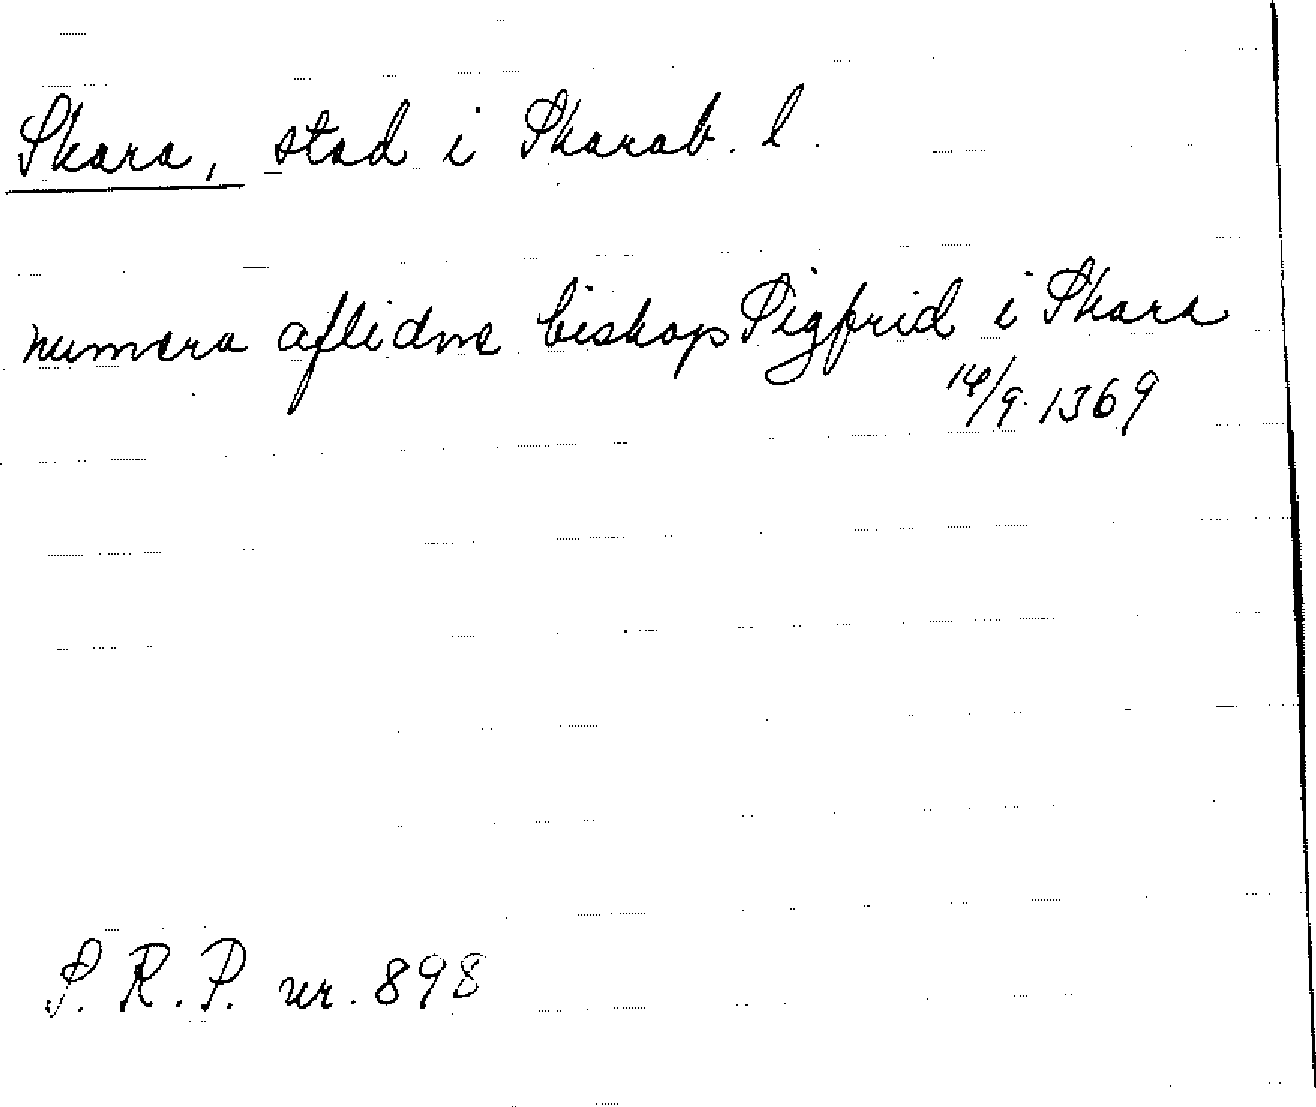 Skara, stad i Skarab. l.
numera aflidne biskop Sigfrid i Skara
14/9 1369
S. R. P. nr. 898